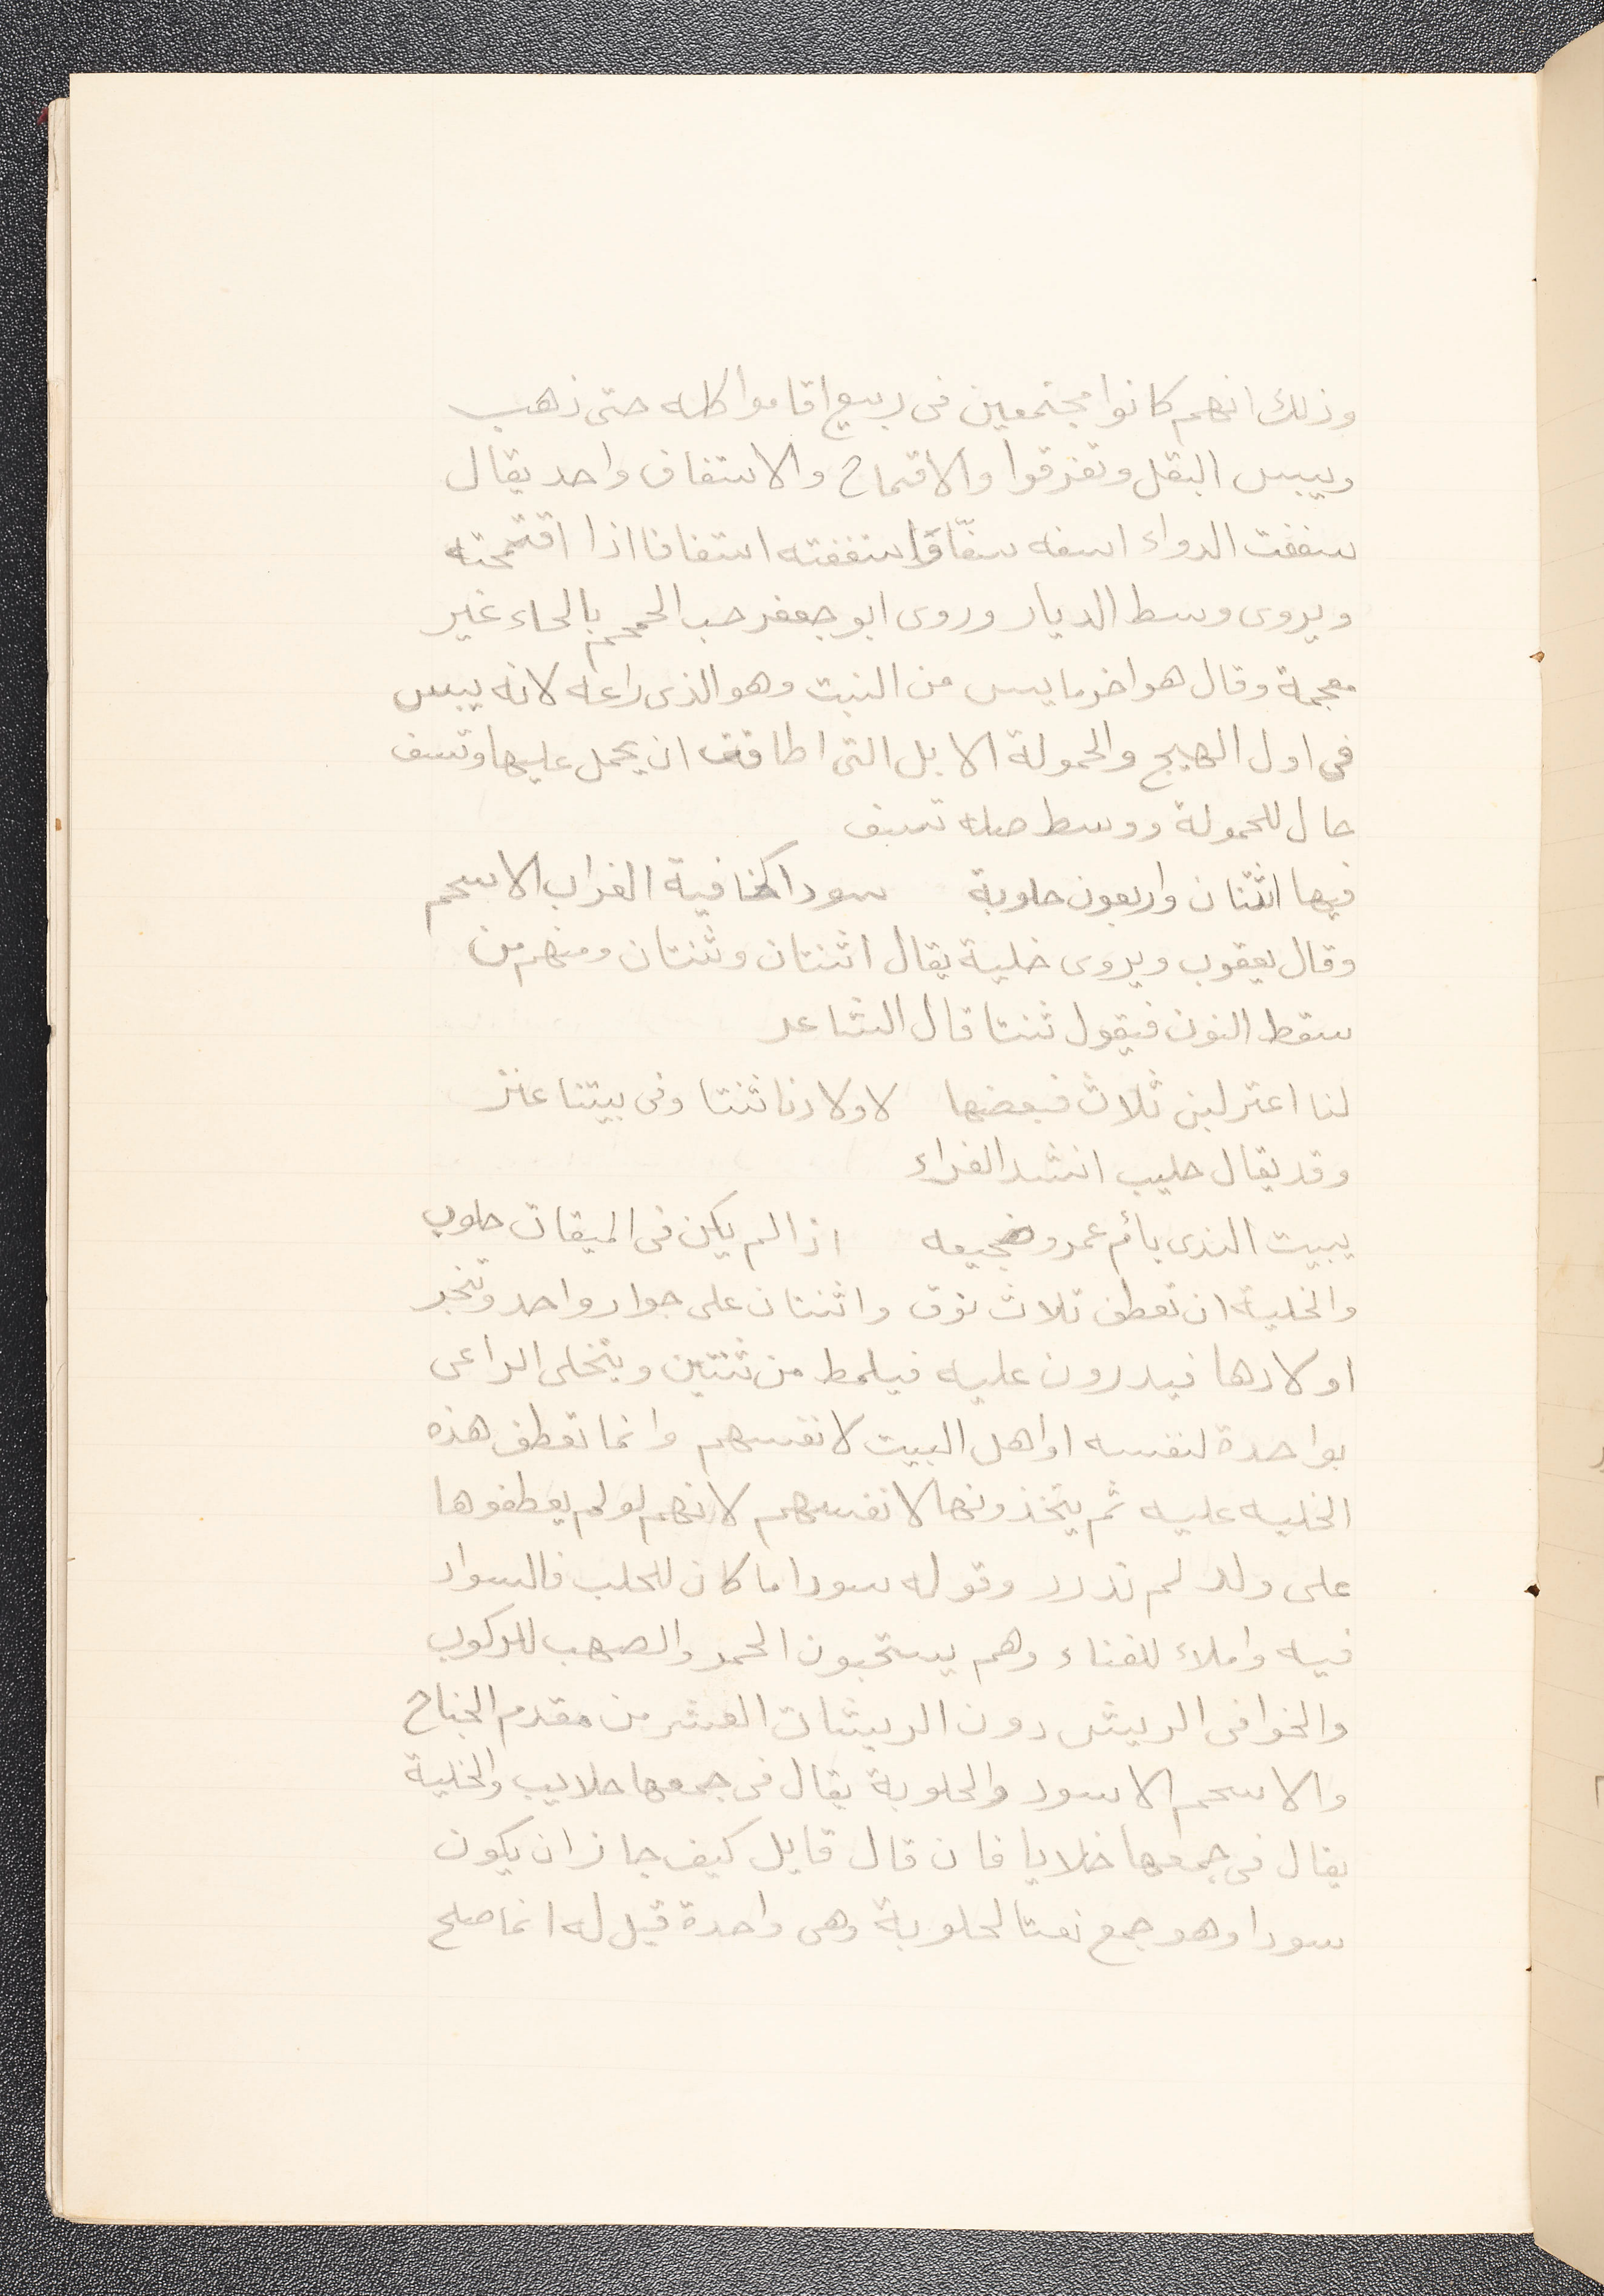 وذلك انهم كانوا مجتمعين فى ربيع اقاموا كله حتى ذهب
ويبس البقل وتفرقوا والاقتماح والاستفاف واحد يقال
سففت الدواء اسفه سفّا واستففته استفافا اذا اقتمحته
ويروى وسط الديار وروى ابو جعفر حب الحمحم بالحاء غير
معجمة وقال هو اخر ما ييبس من النبت وهو الذى راعه لانه ييبس
فى اول الهيج والحمولة الابل التى اطاقت ان يحمل عليها وتسف
حال للحمولة ووسط صلة تسف
فيها اثنتان واربعون حلوبة سودا كخافية الغراب الاسحم
وقال يعقوب ويروى خلية يقال اثنتان وثنتان ومنهم من
سقط النون فيقول ثنتا قال الشاعر
لنا اعنز لبن ثلاث فبعضها لاولادنا ثنتا وفى بيتنا عنز
وقد يقال حليب انشد الفراء
يبيت الندى يا أم عمرو ضجيعه اذا لم يكن فى المنقيات حلوب
والخلية ان تعطف ثلاث نوق واثنتان على حوار واحد وتنحر
اولادها فيدرون عليه فيلمط من ثنتين ويتخلى الراعى
بواحدة لنفسه او اهل البيت لانفسهم وانما تعطف هذه
الخليه عليه ثم يتخذونها لانفسهم لانهم لو لم يعطفوها
على ولد لم تدرر وقوله سودا ما كان للحلب فالسواد
فيه واملاء للفناء وهم يستحبون الحمر والصهب للركوب
والخوافى الريش دون الريشات العشر من مقدم الجناح
والاسحم الاسود والحلوبة يقال فى جمعها حلايب والخلية
يقال فى جمعها خلايا فان قال قايل كيف جاز ان يكون
سودا وهو جمع نعتا لحلوبة وهى واحدة قيل له انما صلح